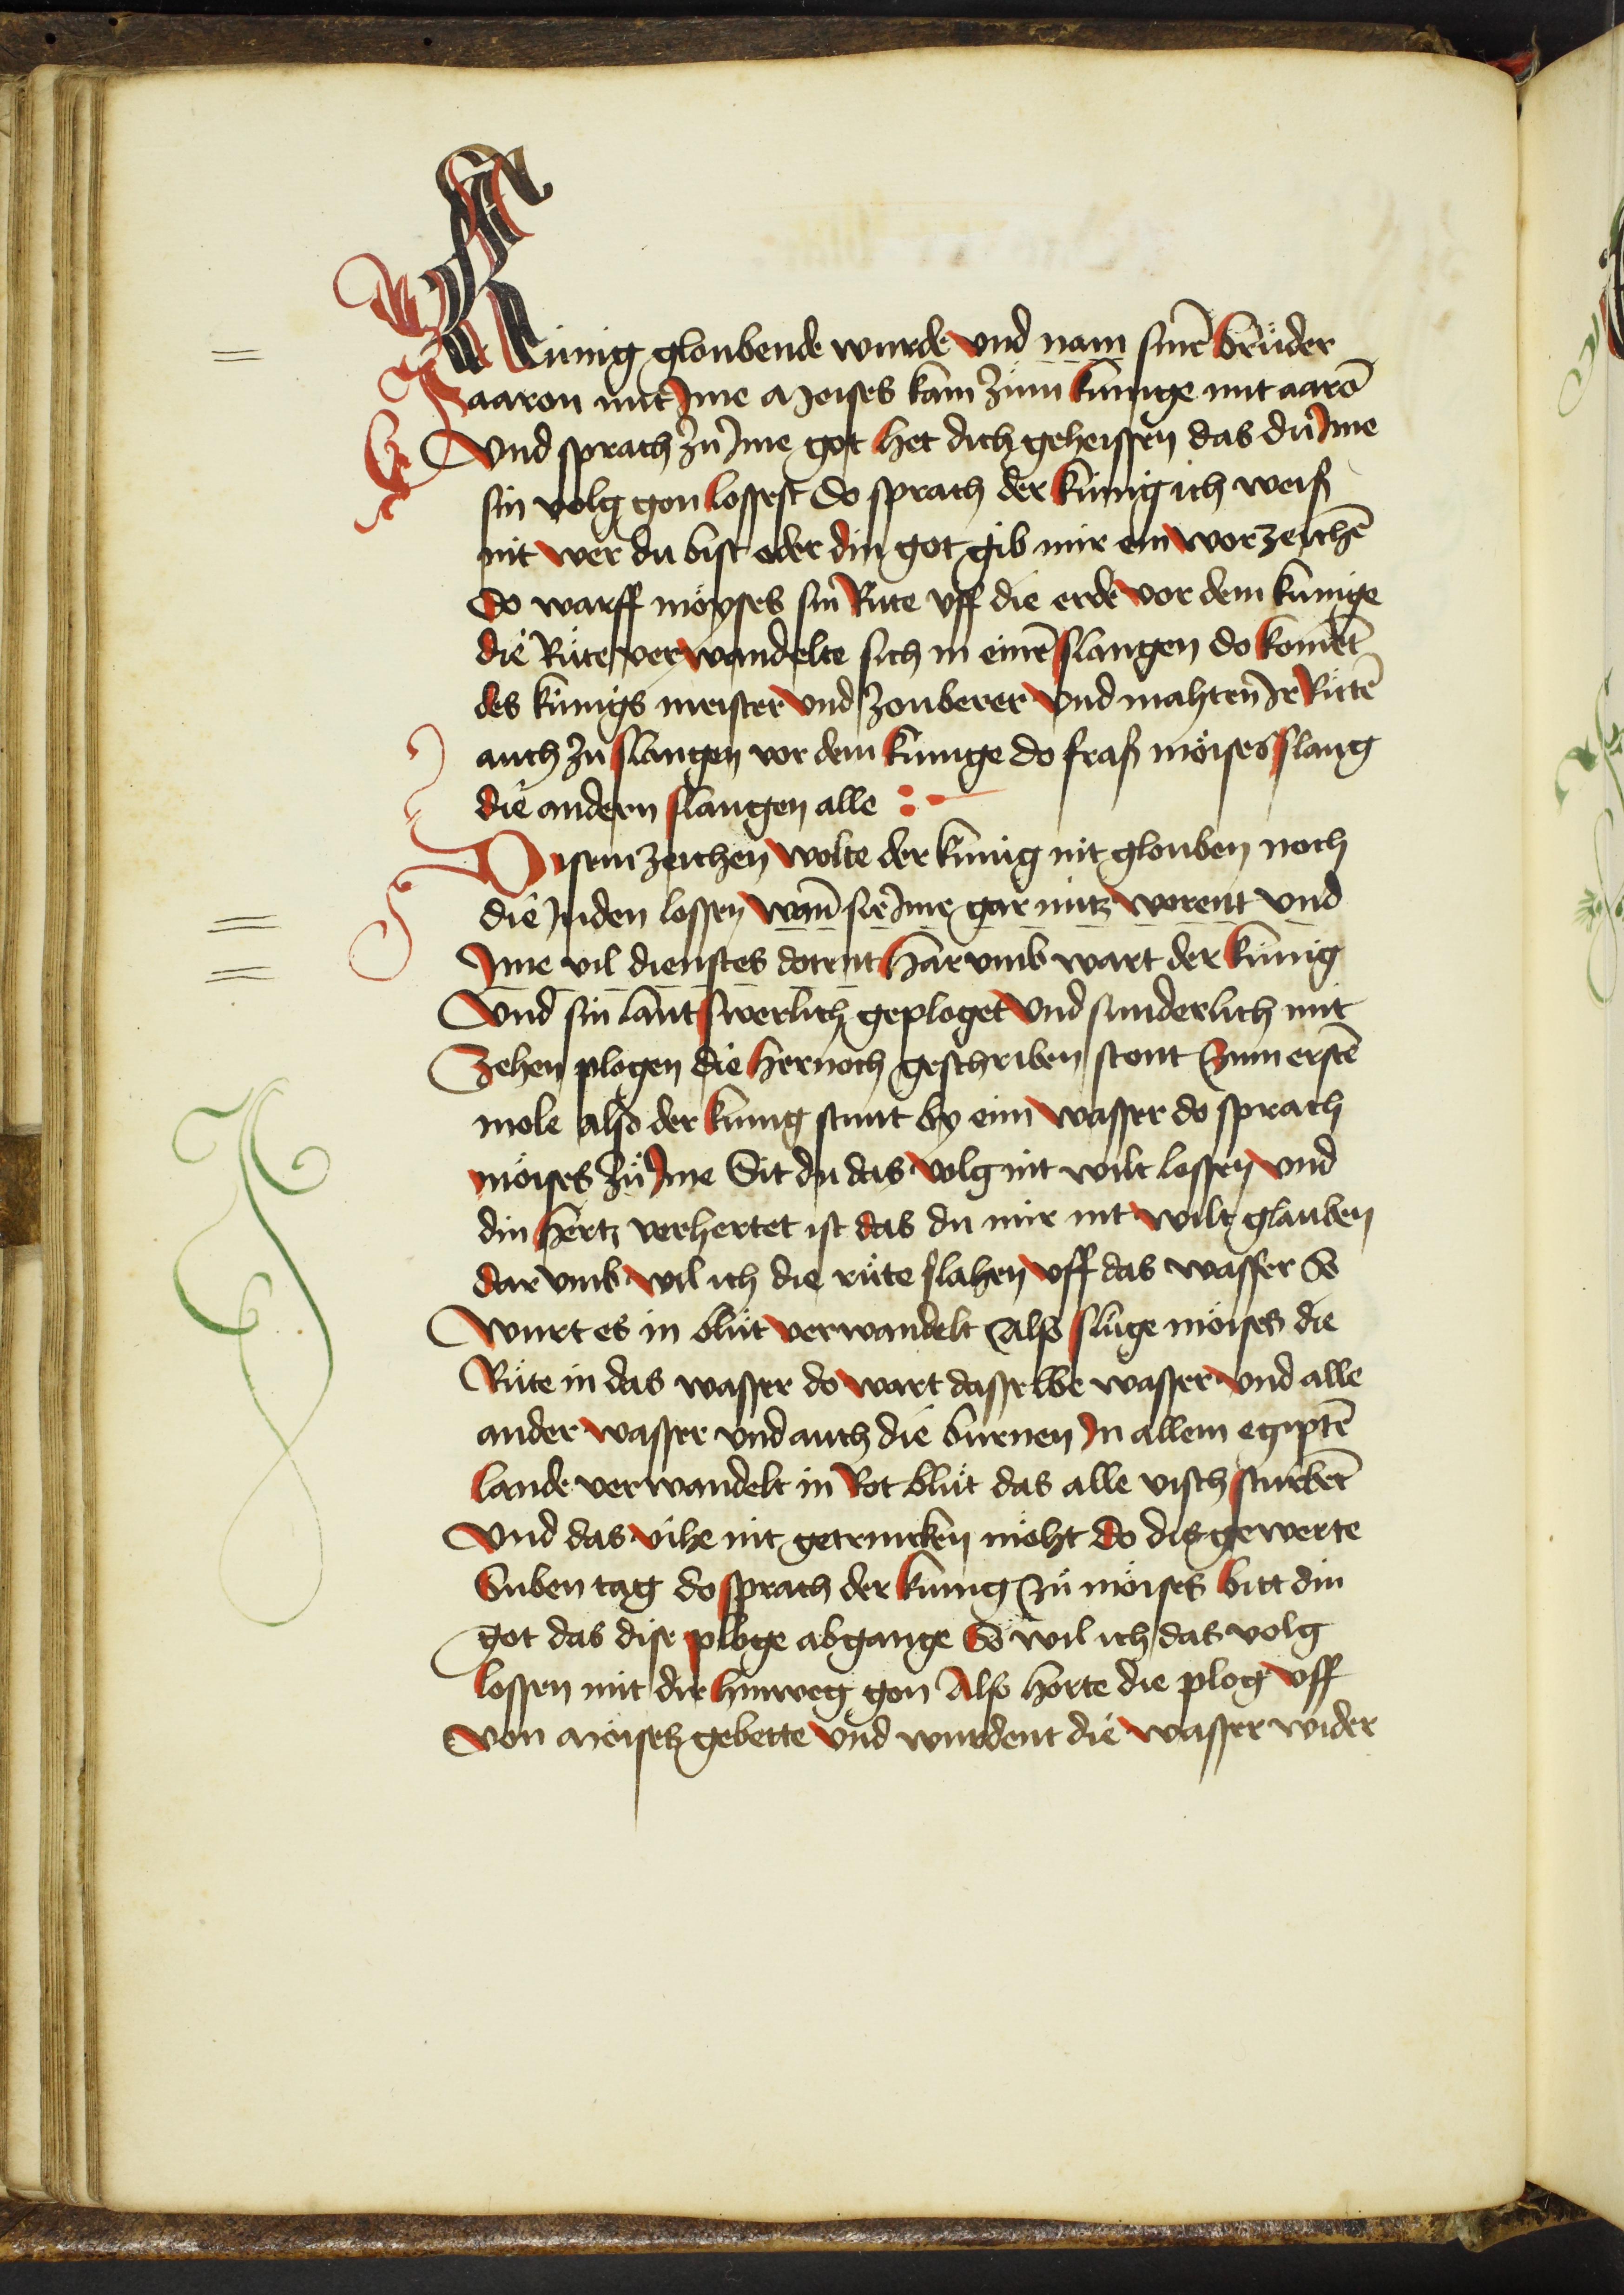 Künig gloubende wurde vnd nam sinē brüder
aaron mit Ime Moises kam zům kunige mit aarō
Vnd sprach zů Ime got het dich geheissen das dů Ime
sin volg gon lossest Do sprach der künig ich weiß
nit wer du bist oder din got gib mir ein worzeichē
Do warff möyses sin Růte vff die erde vor dem kunige
die Růte verwandelte sich in einē slangen do komēt
des kunigs meister vnd zouberer vnd mahten Ir Růtē
auch zů slangen vor dem kunige do fraß möises slang
die andern slangen alle :-
Disem zeichen wolte der kunig nit glouben noch
die Juden lossen wan̄ sie Ime gar nutz worent vnd
Ime vil dienstes dotent Har vmb wart der künig
Vnd sin lant swerlich geploget vnd sunderlich mit
Zehen plogen die hernoch geschriben stont Zum erstē
mole also der kunig stunt by eim wasser do sprach
möises zů Ime Sit du das volg nit wilt lossen vnd
din hertz verhertet ist das du mir nit wilt glauben
dar vmb wil ich die růte slahen vff das wasser So
Wurt es in blůt verwandelt Also slůge möises die
Růte in das wasser do wart dasselbe wasser vnd alle
ander wasser vnd auch die burnen In allem egiptē
lande verwandelt in Rot blůt das alle visch sturbēt
Vnd das vihe nit getrincken möht Do dis gewerte
Siben tag do sprach der kunig zů möises bitt din
got das dise ploge abgange So wil ich das volg
lossen mit dir hinweg gon Also horte die plog vff
Von Moisetz gebette vnd wurdent die wasser wider